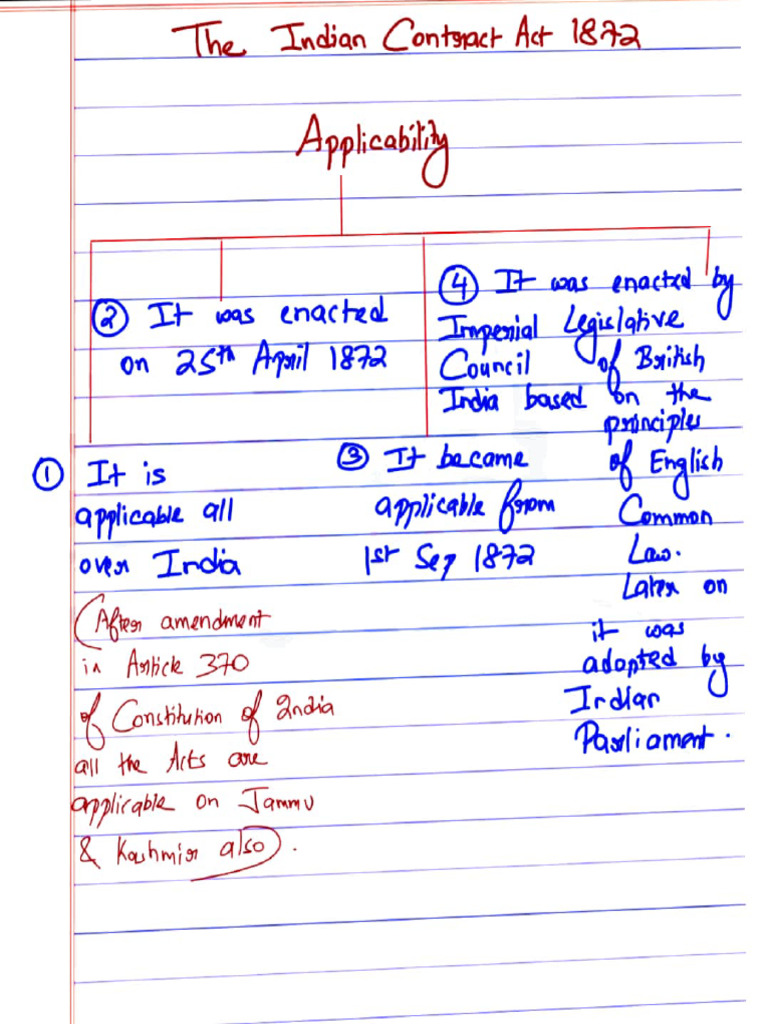 The Indian Contract Act 1872
Applicability
① It is
applicable all
over India
(After amendment
in Article 370
of Constitution of India
all the Acts are
applicable on Jammu
& Kashmir also).
② It was enacted
on 25th April 1872
③ It became
applicable from
1st Sep 1872
④ It was enacted by
Imperial Legislative
Council of British
India based on the
principles
of English
Common
Law.
Later on
it was
adopted by
Indian
Parliament.